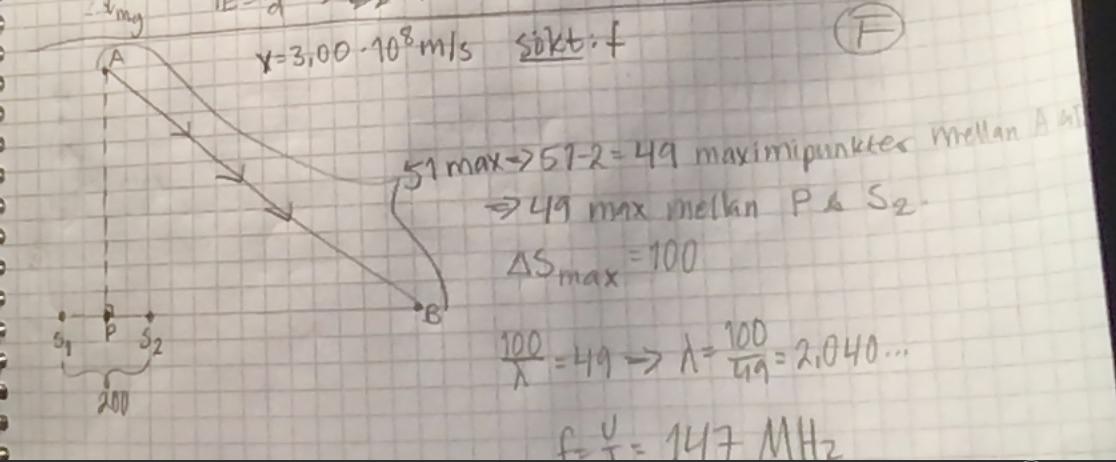 mg
A v=3,00·10⁸ m/s sökt: f F
51 max → 51-2=49 maximipunkter mellan A
⇒ 49 max mellan P & S₂.
ΔSmax = 100
B
S₁ P S₂
100/λ = 49 ⇒ λ = 100/49 = 2,040...
200
f = v/λ = 147 MHz